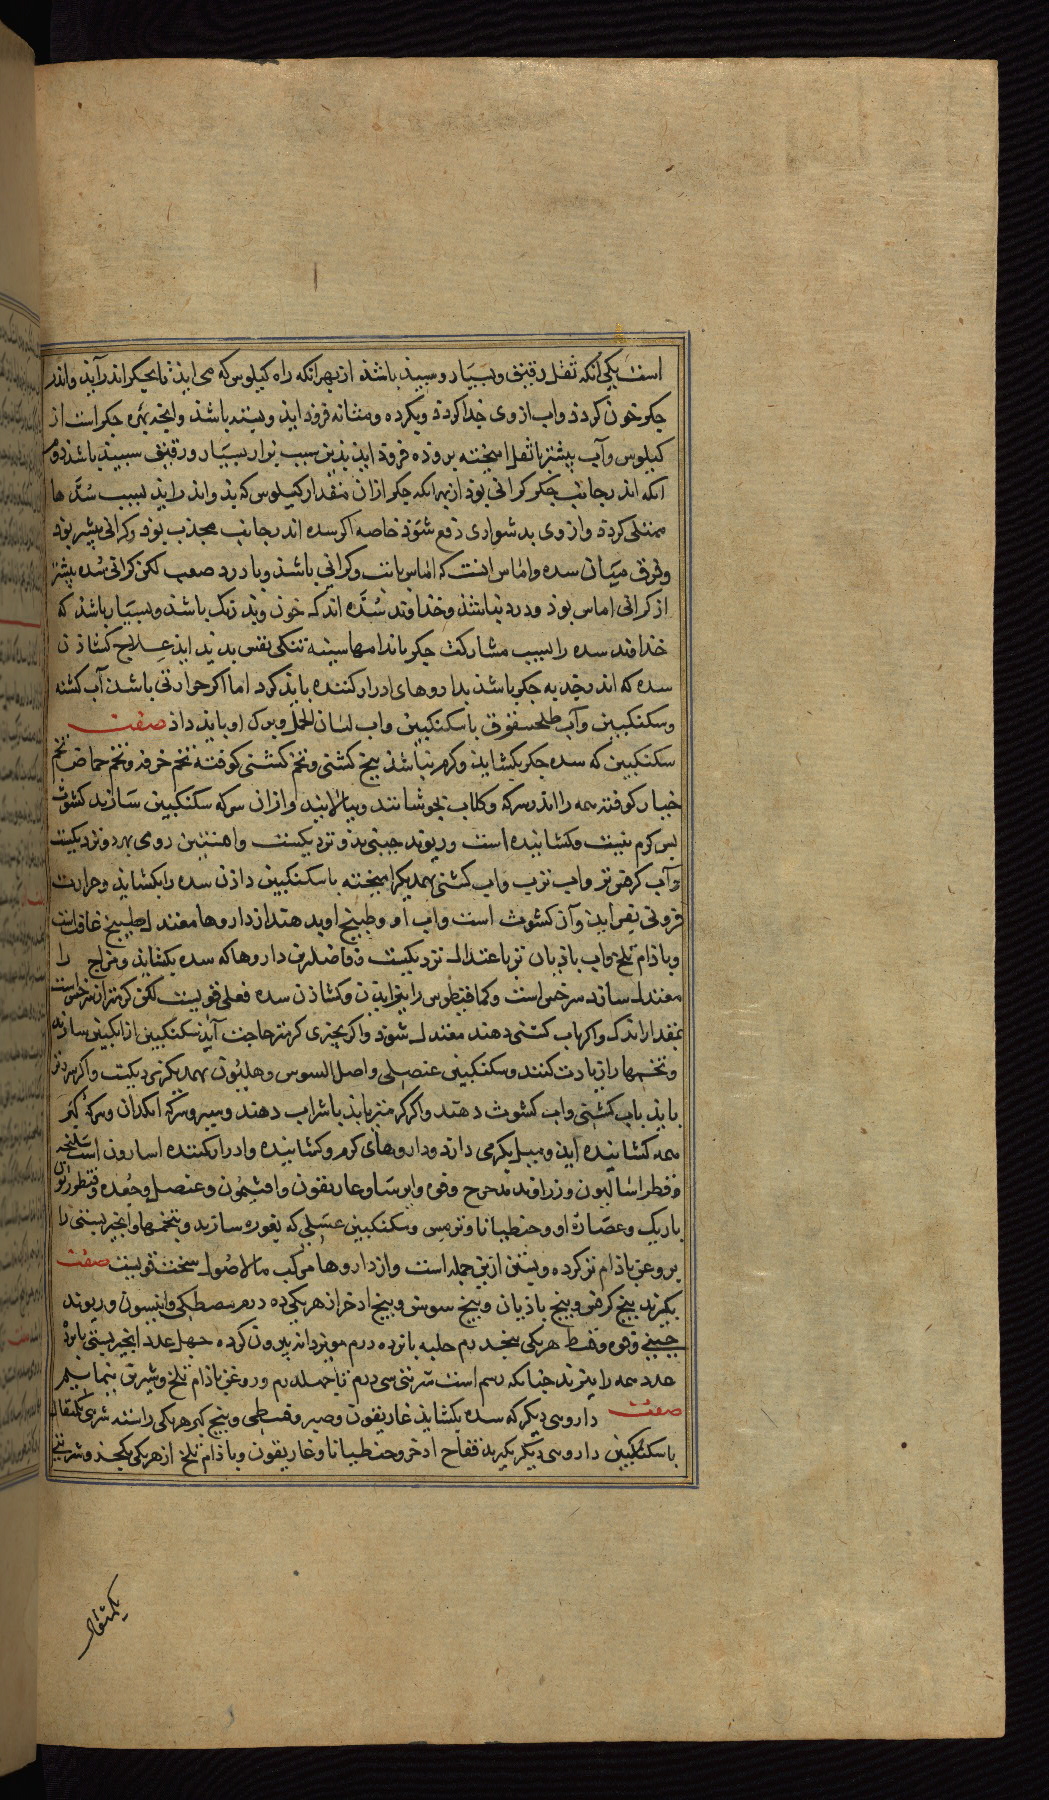 است یکی آنکه ثفل رقیق و بسیار و سپیذ باشذ از بهر انکه راه کیلوس که می ایذ تا بجکر اندر آیذ و اندر
جکر خون کردذ و اب از وی جذا کردد و بکرده و مثانه فروذ ایذ و بسته باشذ و انجه بهره جکر است از
کیلوس و آب بیشتر با ثفل امیخته بروذه فروذ ایذ بذین سبب براز بسیار و رقیق سپیذ باشذ دوم
انکه اندر جانب جکر کرانی بوذ از بهر انکه جکر از ان مقدار کیلوس که بذو اندر ایذ بسبب سُدّها
ممتلی کردد و از وی بدشواری دفع شوذ خاصه اکر سده اندر جانب محدب بوذ و کرانی بیشر بوذ
و فرق میان سده و اماس انست که اماس با تب و کرانی باشذ و با درد صعب لکن کرانی سُده بیشتر
از کرانی اماس بوذ و درد نباشذ و خذاوند سُدّه اندک خون و بذ رنک باشذ و بسیار باشذ که
خذاوند سده را بسبب مشارکت جکر با اندامها سینه تنکی نفس بدید ایذ علاج کشاذن
سده که اندر حدبه جکر باشذ بداروهای ادرار کننده بایذ کرد اما اکر حرارتی باشذ آب کشنه
و سکنکبین و آب طلحشقوق با سکنکبین و اب لسان الحمل و برک او بایذ داذ صفت
سکنکبین که سده جکر بکشایذ و کرم نباشذ بیخ کشنی و تخم کشنی کوفته تخم خرفه و تخم حماض تخم
خیار کوفته همه را اندر سرکه و کلاب بجوشانند و ببالایند و از ان سرکه سکنکبین سازند کشوث
بس کرم نیست و کشاینده است و ریوند جینی بذو نزدیکست و افسنتین رومی بهردو نزدیکست
و آب کرفس تر و اب ترب و اب کشنی بهمدیکر امیخته با سکنکبین داذن سده را بکشایذ و حرارت
و باذام تلخ و اب باذیان تر باعتدال نزدیکست و فاضلترین داروها که سده بکشایذ و مزاج را
معتدل سازد سرخس است و کمافیطوس را بتر ایذن و کشاذن سده فعلی قویست لکن کرمتر از سرخس است
بمقدار اندک و اکر باب کشنی دهند معتدل شود و اکر بجیزی کرمتر حاجت آیذ سکنکبین از انکبین سازند
و تخمها را زیادت کنند و سکنکبین عنصلی و اصل السوس و هلیون بهمدیکر نزدیکست
بایذ باب کشنی و اب کشوث دهند و اکر کرمتر بایذ با شراب دهند و سیر و سرکه انکدان و سرکه کبر
همه کشاینده ایذ و میل بکرمی دارد و داروهای کرم و کشاینده و ادرار کننده اسارون است سلیخه
و فطراسالیون و زراوند مدحرج و فوه و ایرسا و غاریقون و افتیمون و عنصل و جعده و قنطوریون
باریک و عصاره او و جنطیانا و ترمس و سکنکبین عسلی که بغوره سازند و بتخمها و انجیر بستنی را
بروغن باذام تر کرده و بستن ازین جمله است و از داروها مرکب ما الاصُول سخت قویست صفت
بکیرند بیخ کرفس و بیخ باذیان و بیخ سوس و بیخ اذخر از هر یکی ده درم مصطکی و انیسون و ریوند
جینی و فوه و قسط هر یکی بنجدرم حلبه بانزده درم مویز دانه بیرون کرده جهل عدد انجیر بستی بانزده
عدد همه را ببزند جنانکه رسم است شربتی سی درم تا جهلدرم و روغن باذام تلخ و شیرین
صفت داروی دیکر که سده بکشایذ غاریقون و صبر و قسطی و بیخ کبر هر یکی راستد شربتی یکمثقال
با سکنکبین داروی دیکر بکیرند فقاح اذخر و جنطیانا و غاریقون و باذام تلخ از هر یکی یکجزو شربتی
یکمثقال